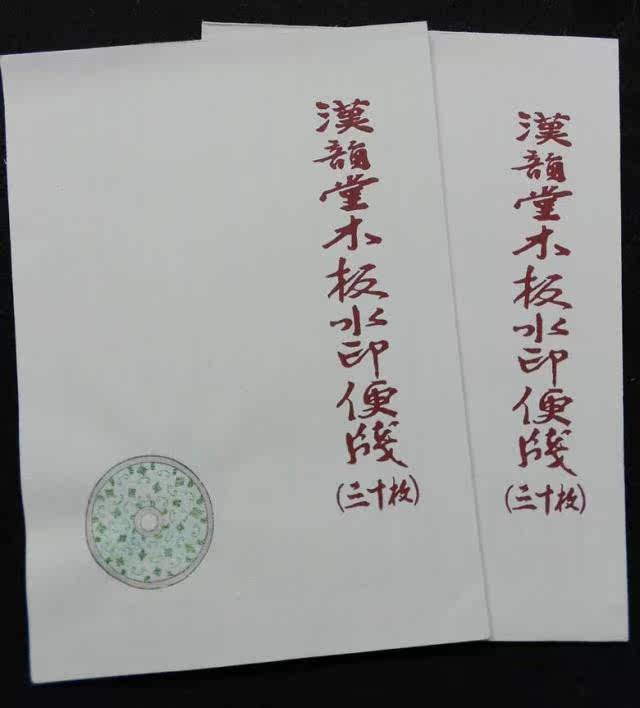 漢韻堂木板水印便牋(三十枚)
漢韻堂木板水印便牋(三十枚)